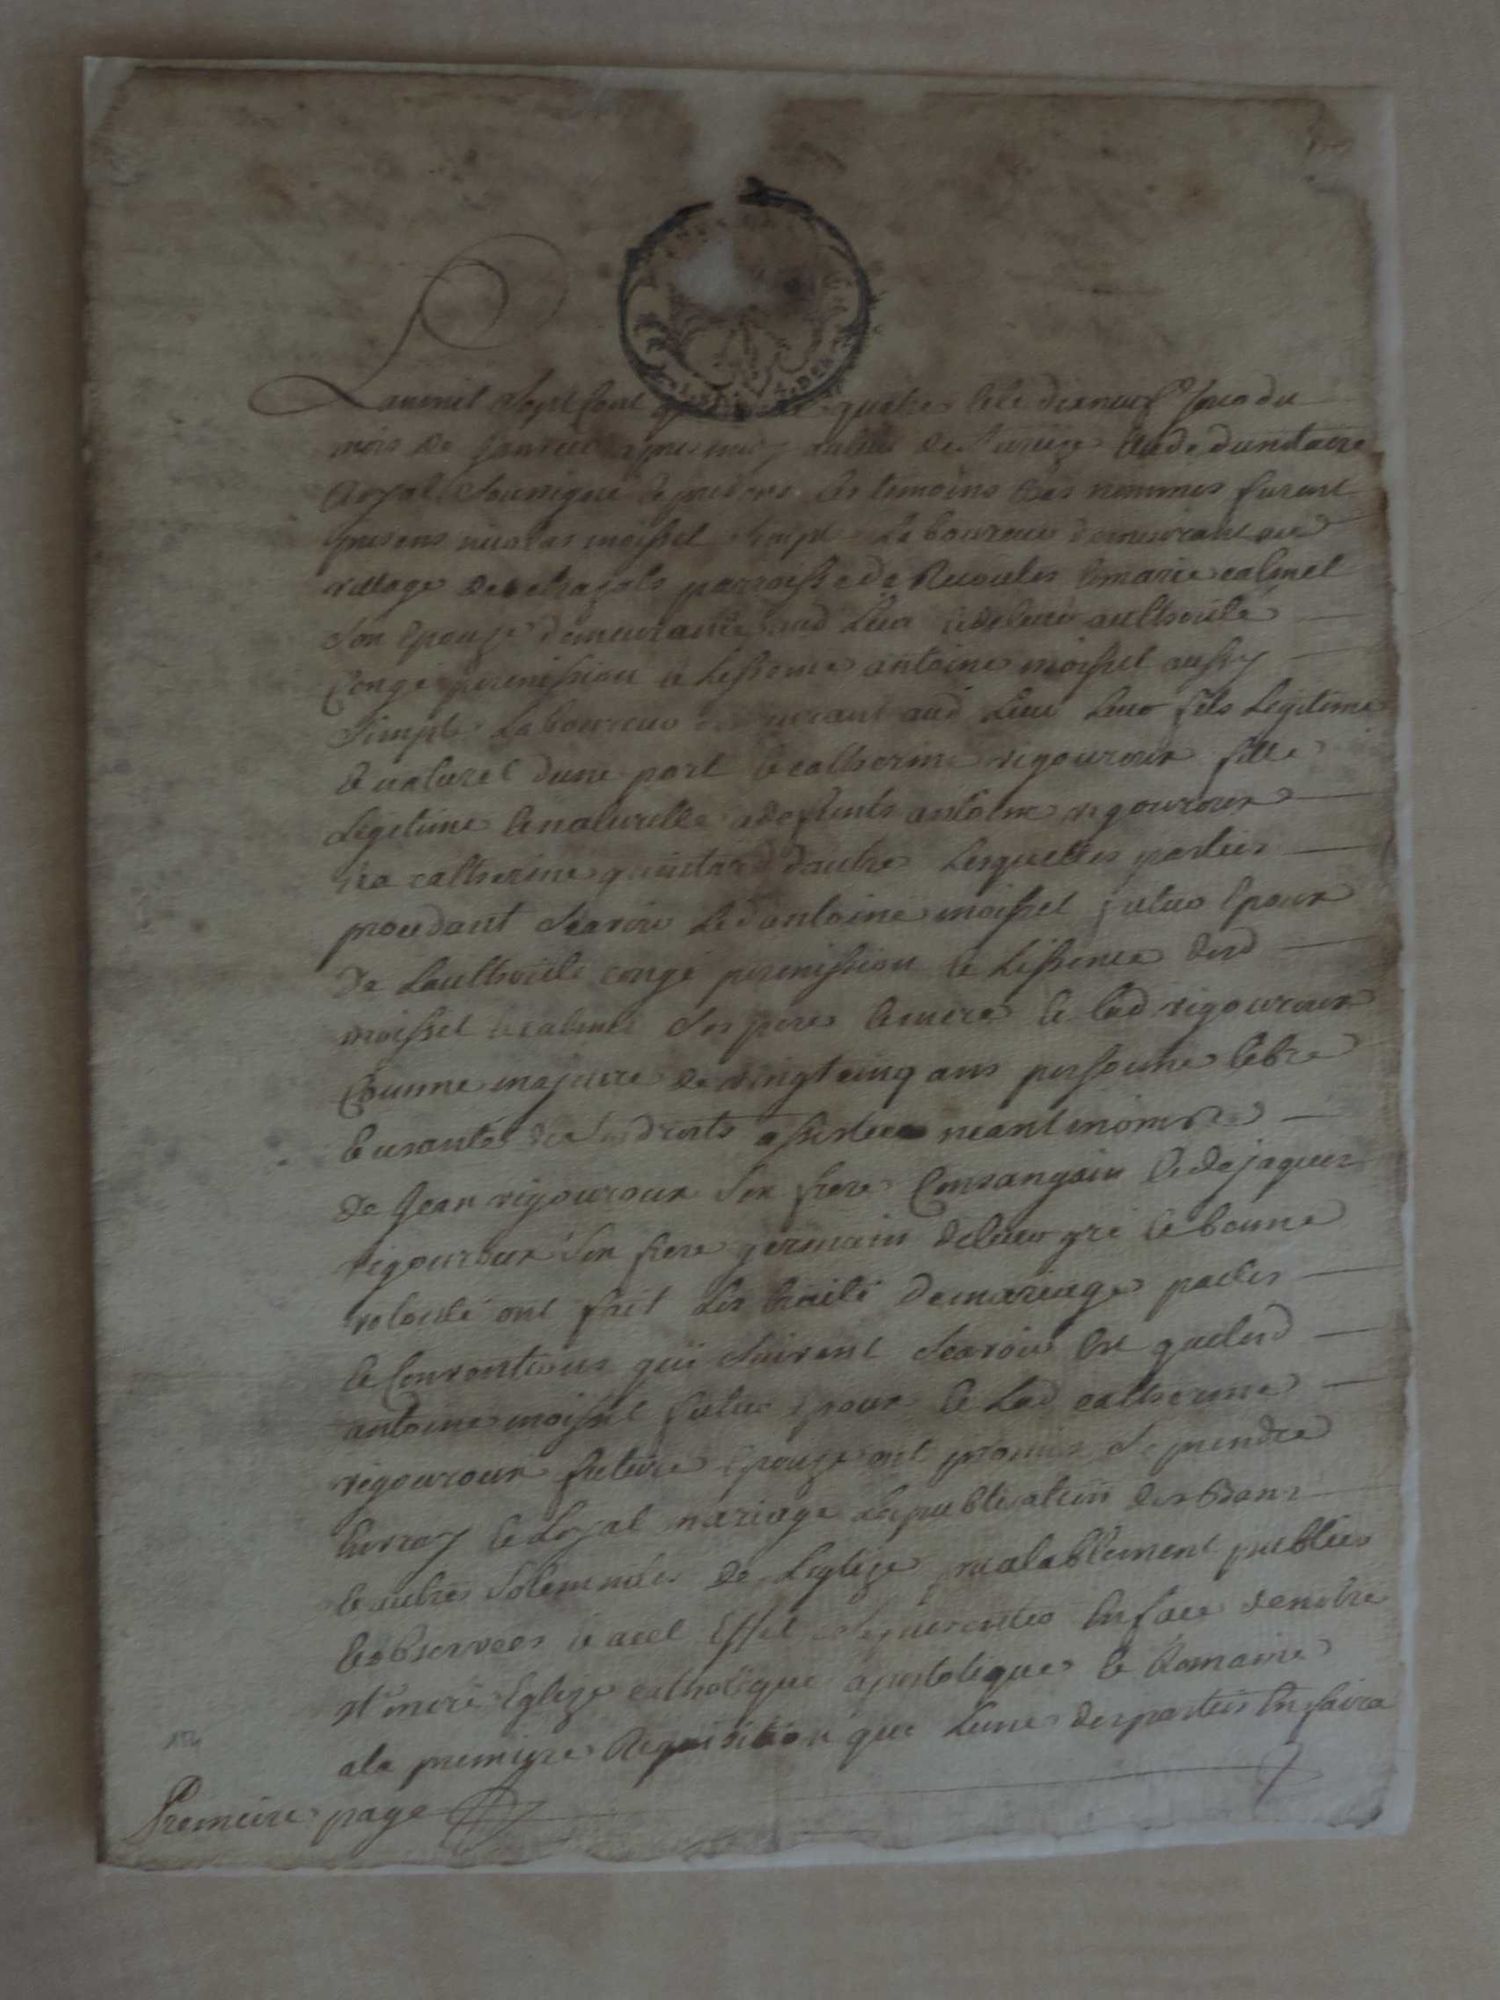 Lanmil Sept sent quatre & le dixneuf Jour du
mois de Janvier apres midy au lieu de Pardevant notaire
Royal Soussigné & presens les temoins bas nommes furent
presens nicolas moisset simple Laboureur demeurant au
village de parroisse de Recoules & marie calmel
Son Epouze demeurante aud Lieu & de leur authorité
Congé permission & Lissence antoine moisset aussy
Simple Laboureur demeurant aud Lieu Leur fils Legitime
& naturel dune part & catherine rigouroux fille
Legitime & naturelle a defunts antoine rigouroux
& a catherine quintard dautre Lesquelles parties
procedant Scavoir Led antoine moisset futur Epoux
De Lauthorité congé permission & Lissence desd
moisset & calmel Ses pere & mere & Lad rigouroux
Comme majeure de vingt cinq ans personne libre
& usante de Ses droits assistée neantmoins
de Jean rigouroux Son frere Consanguin & de jaques
rigouroux Son frere germain de leur gré & bonne
volonté ont fait Les traité de mariage pactes
& Conventions qui Suivent Scavoir Est que led
antoine moisset futur Epoux & Lad catherine
rigouroux future Epouze ont promis Se prendre
En vray & Loyal mariage La publication des Bans
& autres Solemnités de Leglize prealablement publiées
& observées & a cet Effet Se presenter En face de notre
St mere Eglize catholique apostolique & Romaine
a la premiere Requisition que Lune des parties En faira
154
Premiere page